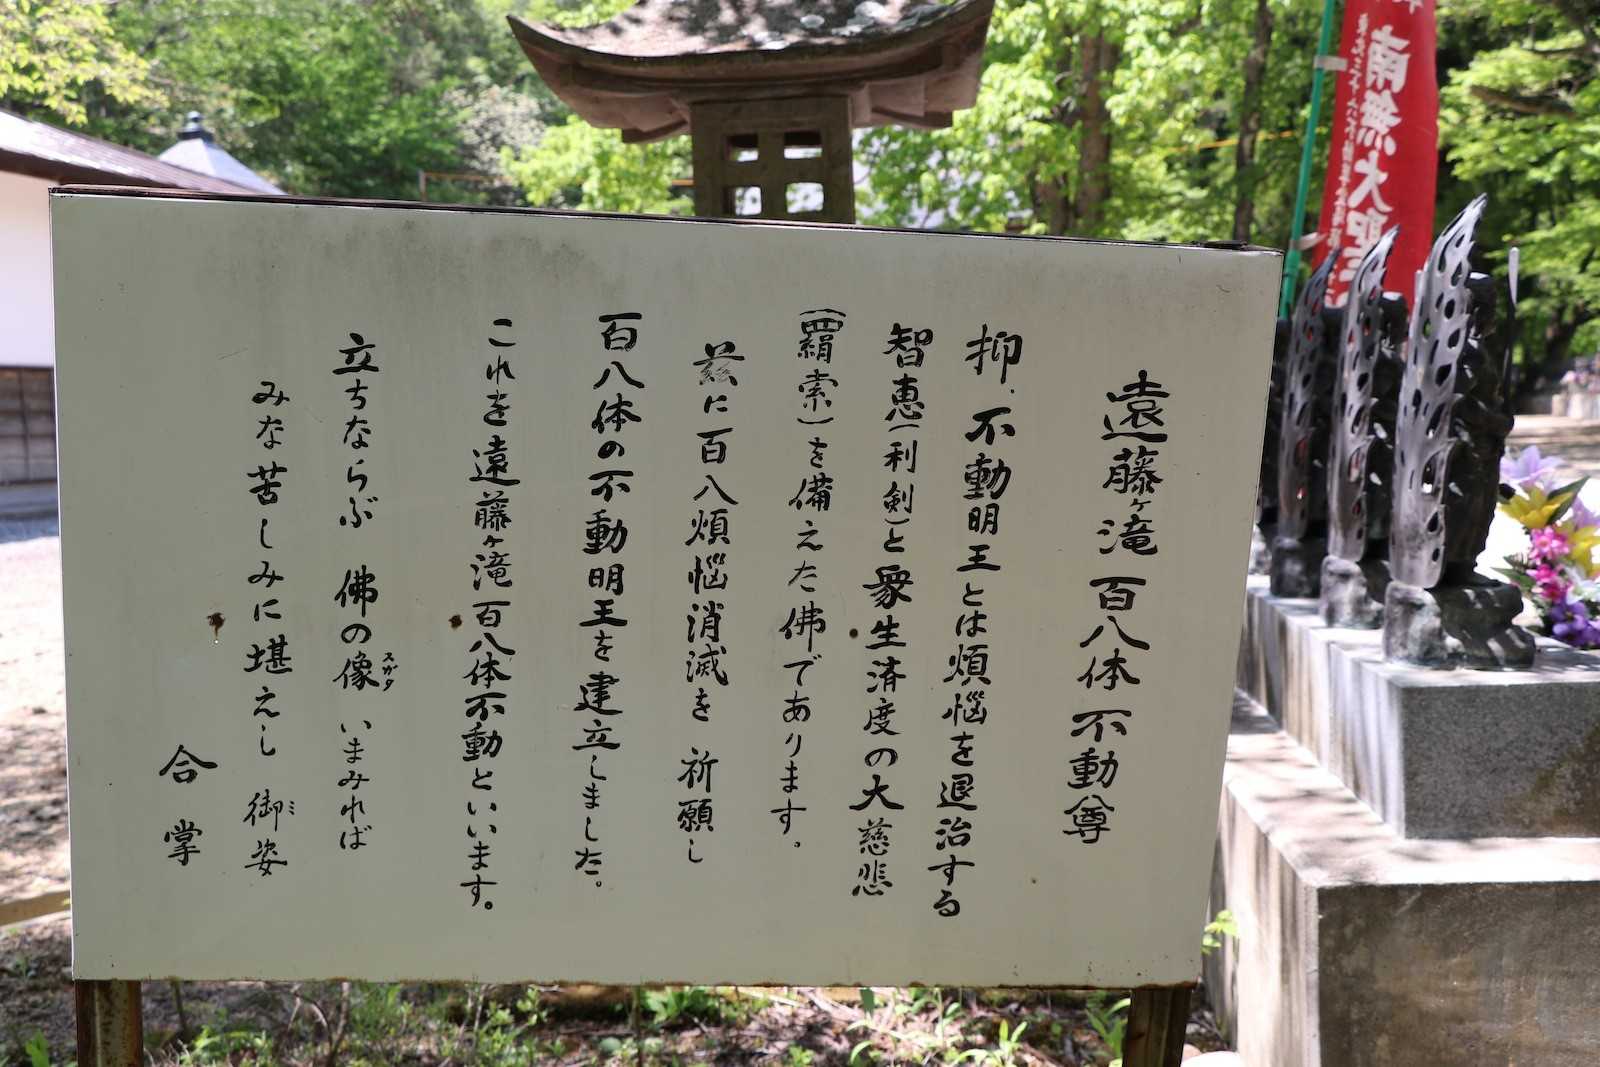 遠藤ヶ滝 百八体 不動尊
抑、不動明王とは煩悩を退治する
智恵(利剣)と衆生済度の大慈悲
(羂索)を備えた佛であります。
茲に百八煩悩消滅を 祈願し
百八体の不動明王を建立しました。
これを遠藤ヶ滝百八体不動といいます。
立ちならぶ 佛の像 いまみれば
スガタ
みな苦しみに堪えし 御姿
ミ
合掌
南無大聖